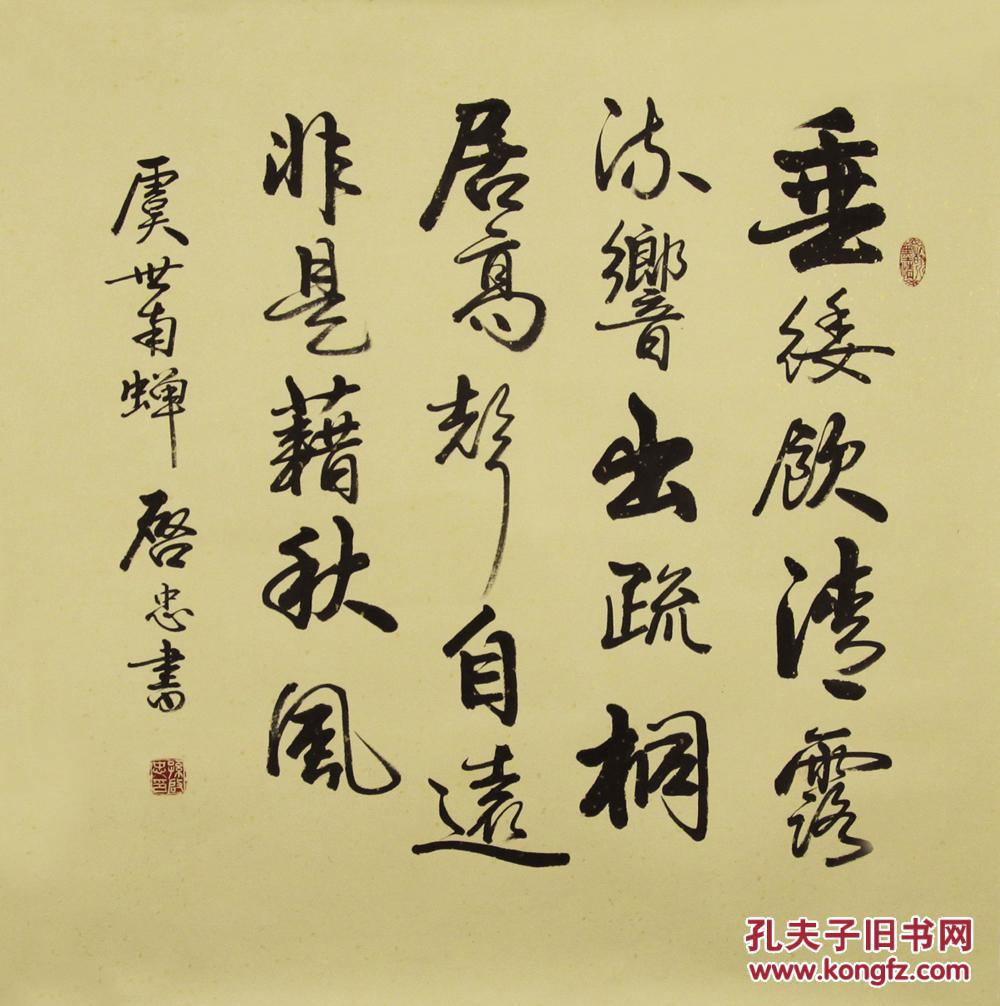 垂緌飲清露
流響出疏桐
居高聲自遠
非是藉秋風
虞世南蝉 啓忠書
孔夫子旧书网
www.kongfz.com